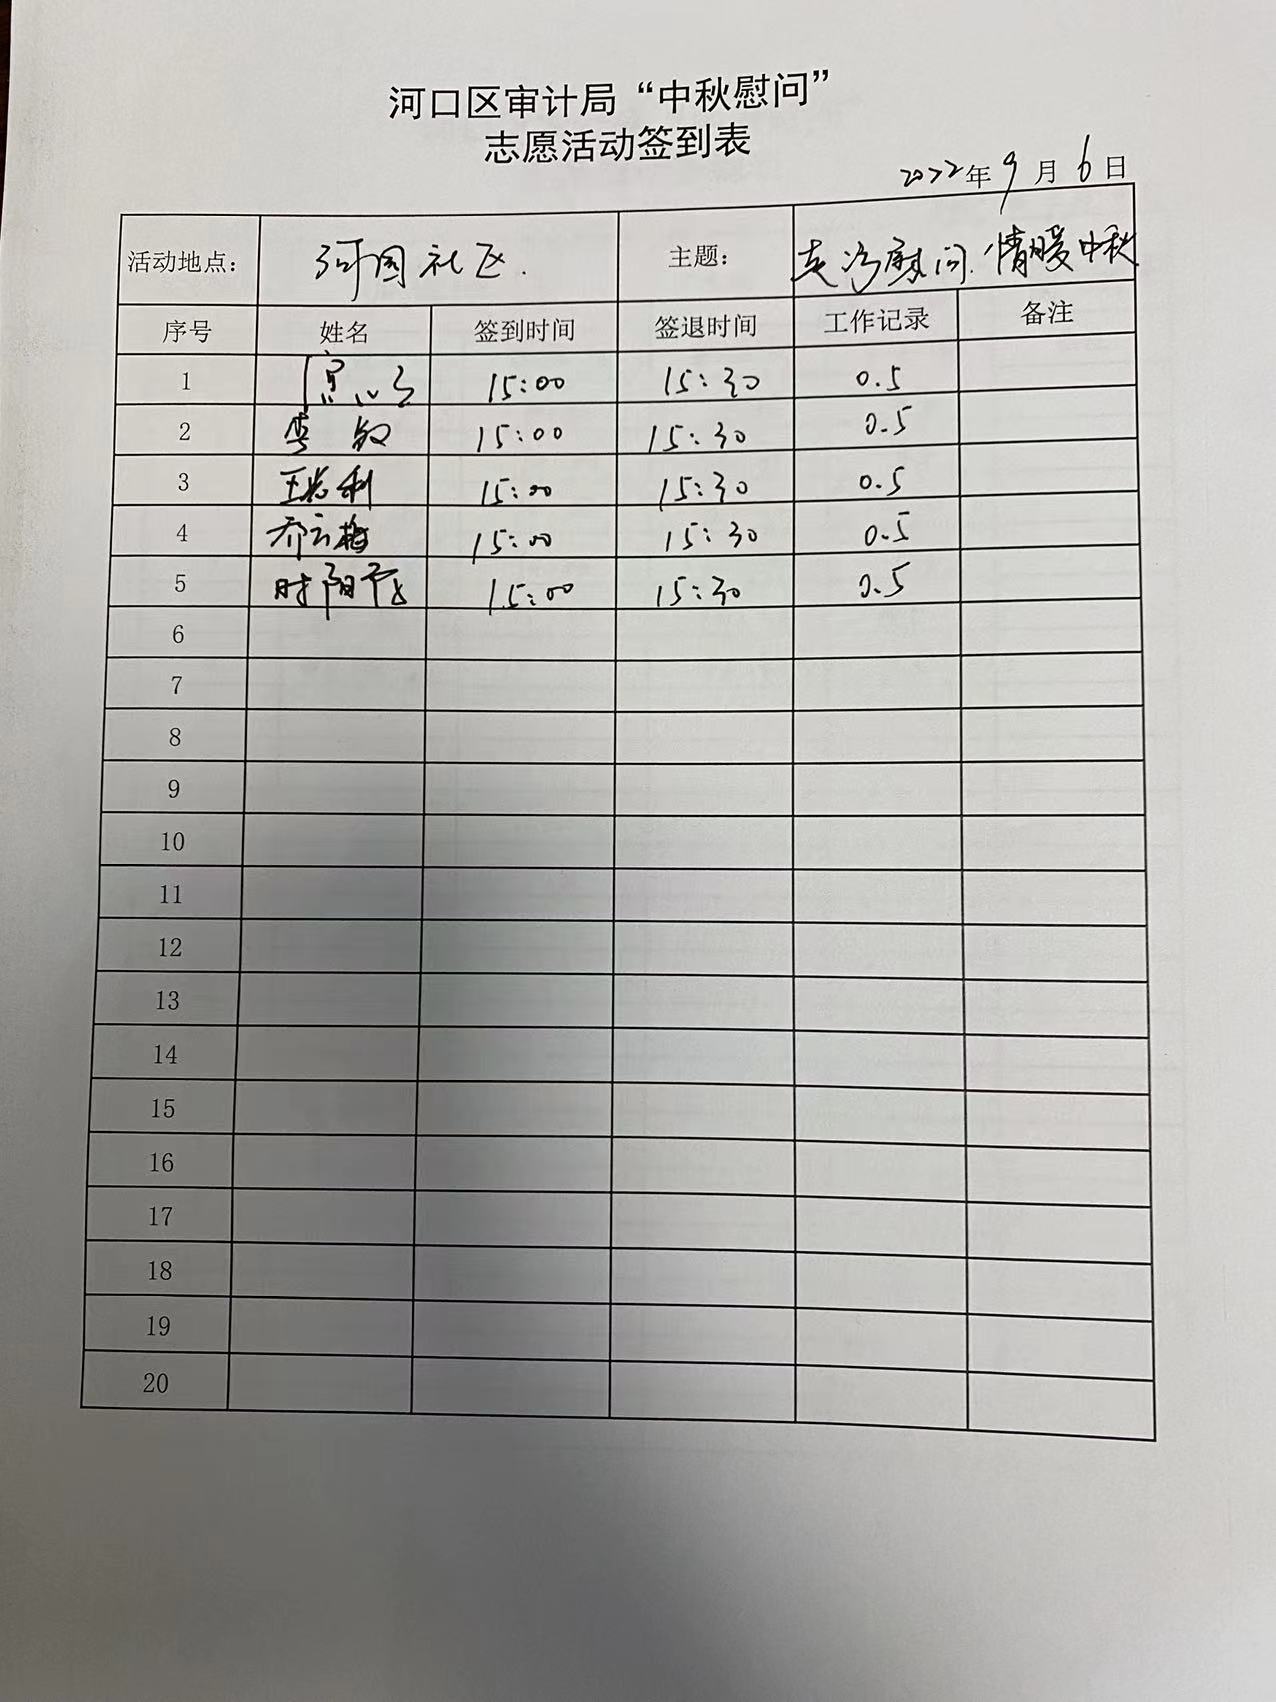 河口区审计局“中秋慰问”
志愿活动签到表
2022年9月6日
活动地点： 河园社区. 主题： 走访慰问.情暖中秋
序号 姓名 签到时间 签退时间 工作记录 备注
1 15:00 15:30 0.5
2 李敏 15:00 15:30 0.5
3 15:00 15:30 0.5
4 乔云梅 15:00 15:30 0.5
5 时阳 15:00 15:30 0.5
6
7
8
9
10
11
12
13
14
15
16
17
18
19
20